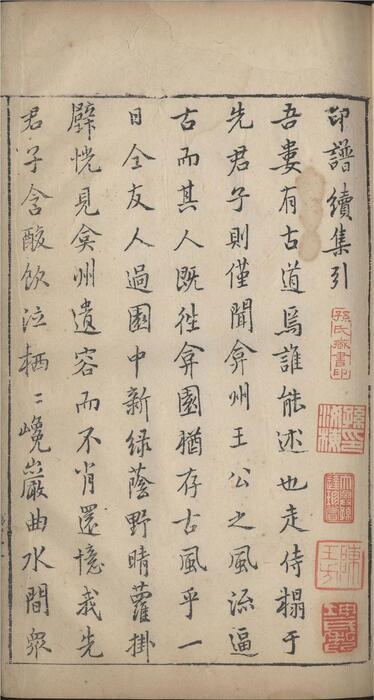 印譜續集引
吾婁有古道焉誰能述也走侍榻于
先君子則僅聞弇州王公之風流逼
古而其人既徃弇園猶存古風乎一
日仝友人過園中新綠蔭野晴蘿掛
壁恍見弇州遺容而不肖還憶我先
君子含酸飲泣栖〻巉巖曲水間眾
孫氏藏書印